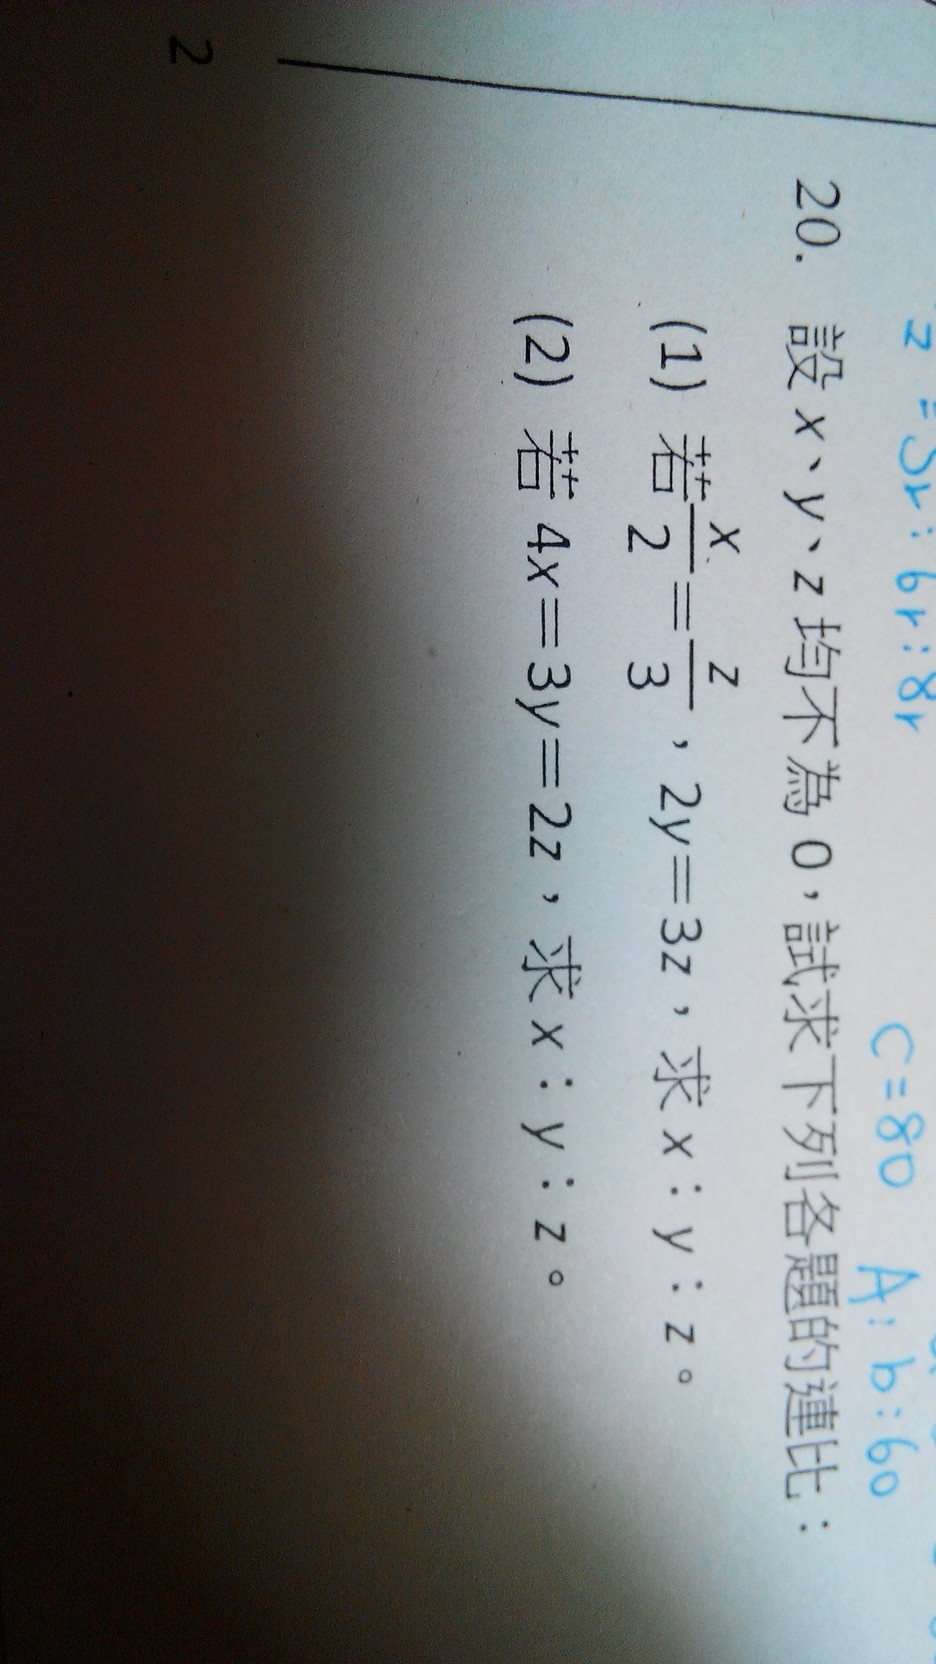 z = 5r : 6r : 8r
C = 80 A : b : 60
20. 設 x、y、z 均不為 0，試求下列各題的連比：
(1) 若 x/2 = z/3，2y=3z，求 x：y：z。
(2) 若 4x=3y=2z，求 x：y：z。
2